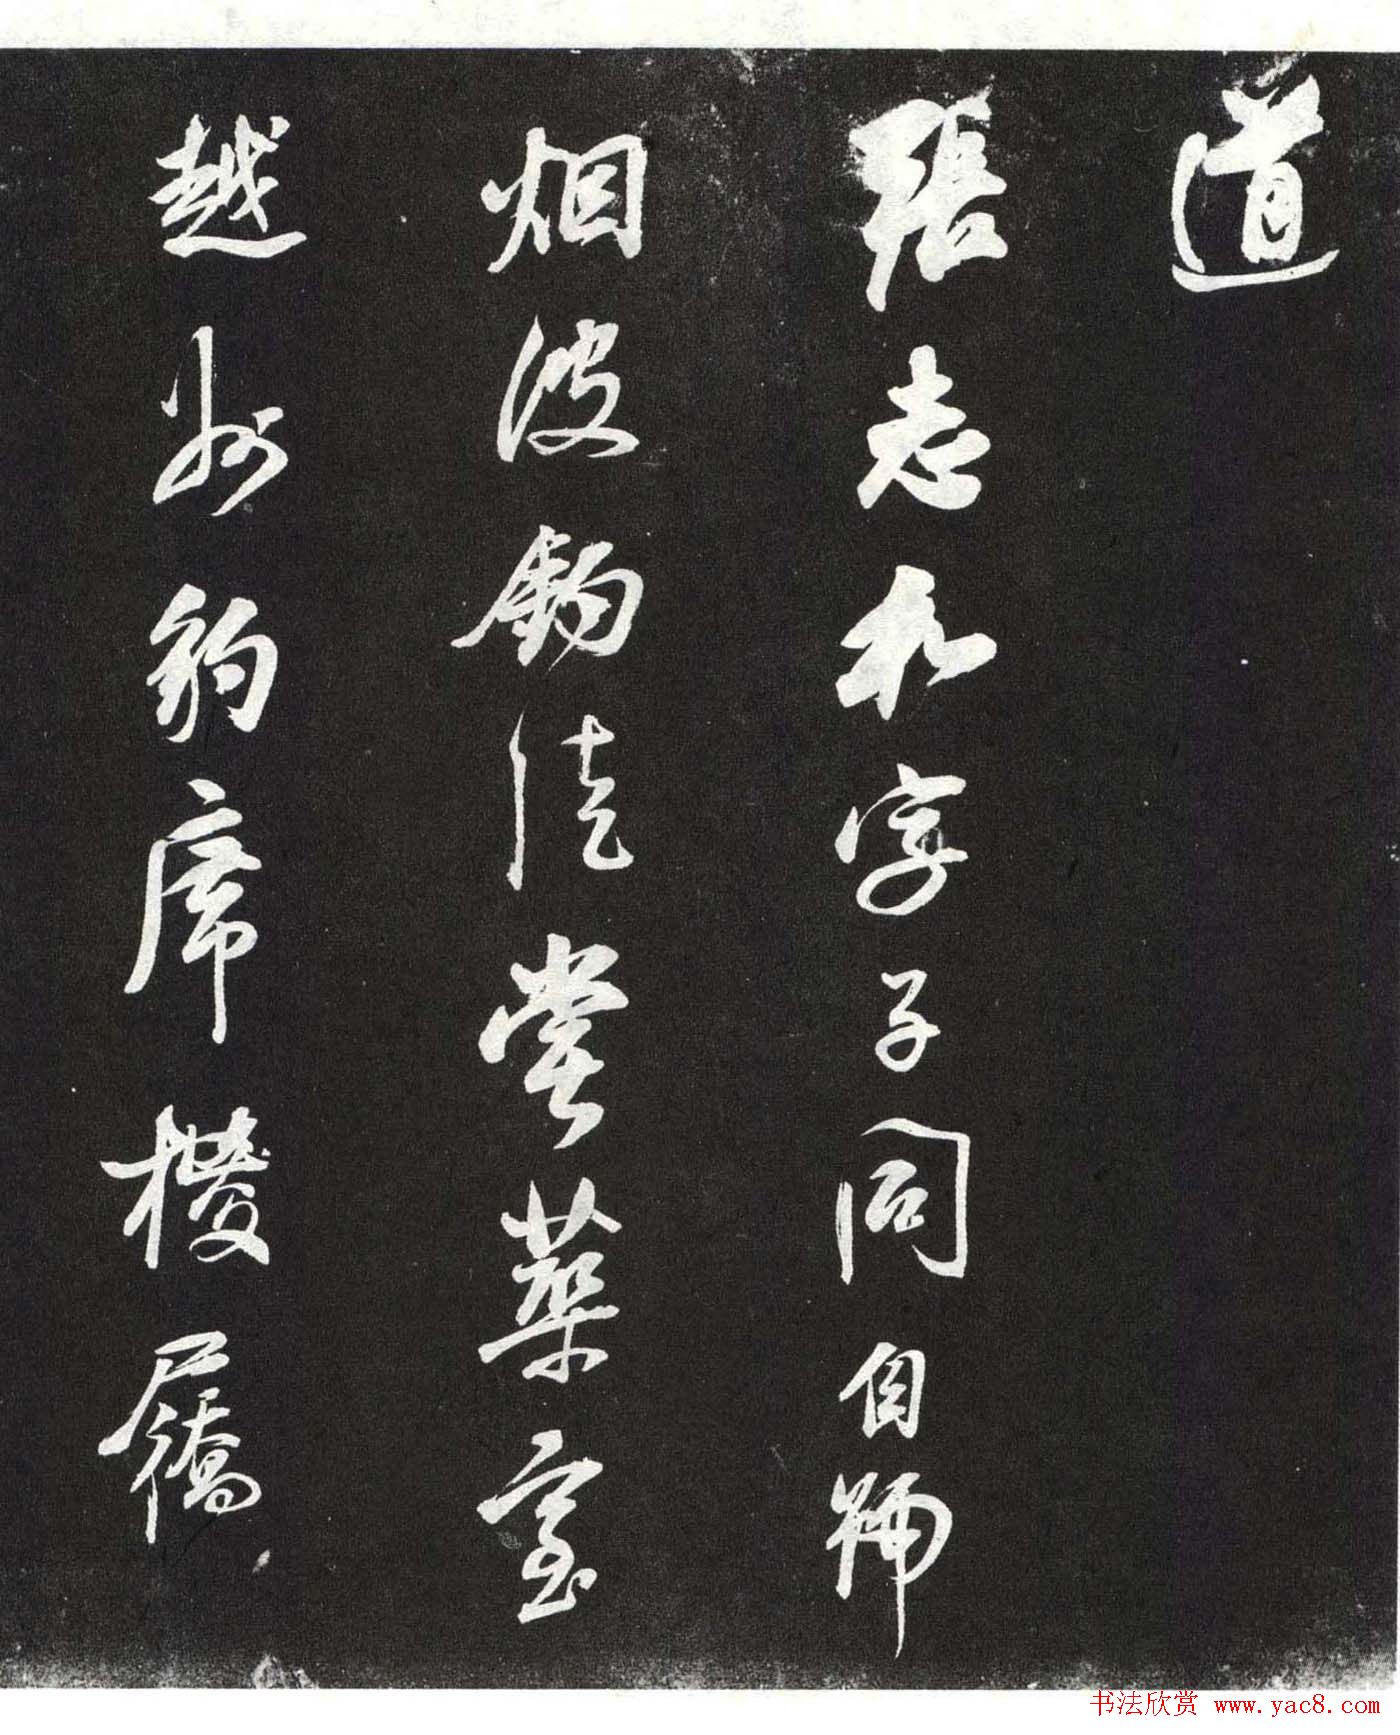 道
張志和字子同自號
烟波釣徒嘗築室
越州豹席椶屩
书法欣赏 www.yac8.com